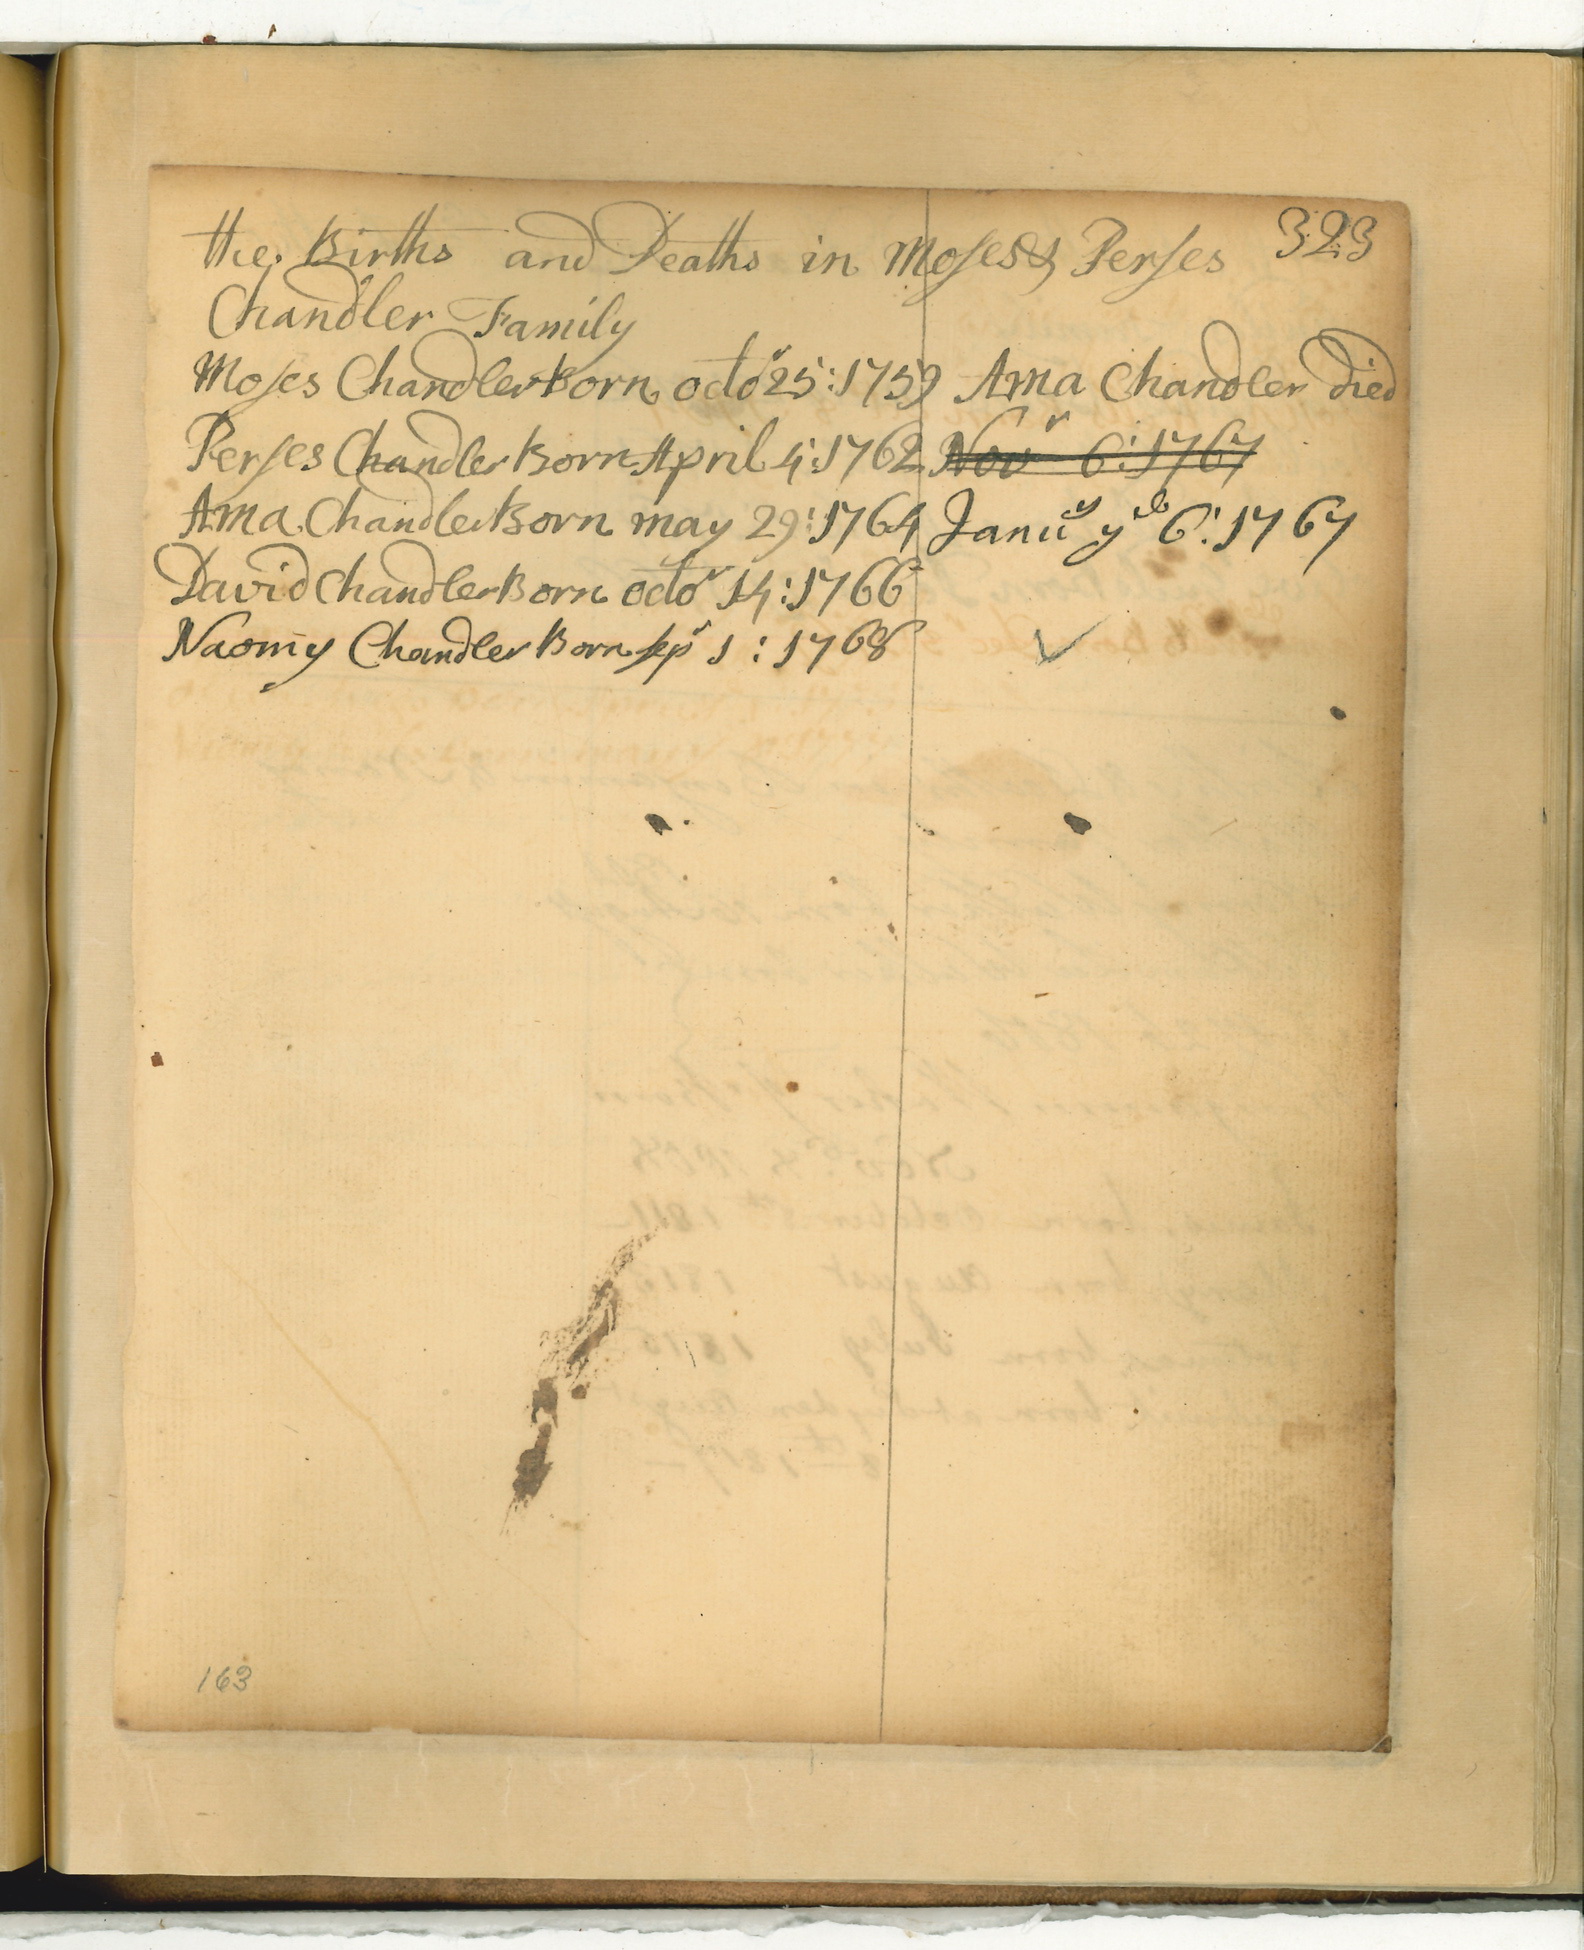 323
the Births and Deaths in Moses & Perses
Chandler Family
Moses Chandler Born octor 25:1759 Ama Chandler Died
Perses Chandler Born April 4:1762 Novr 6:1767
Ama Chandler Born may 29:1764 Janury ye 6:1767
David Chandler Born octor 14:1766
Naomy Chandler Born sepr 1:1768
163